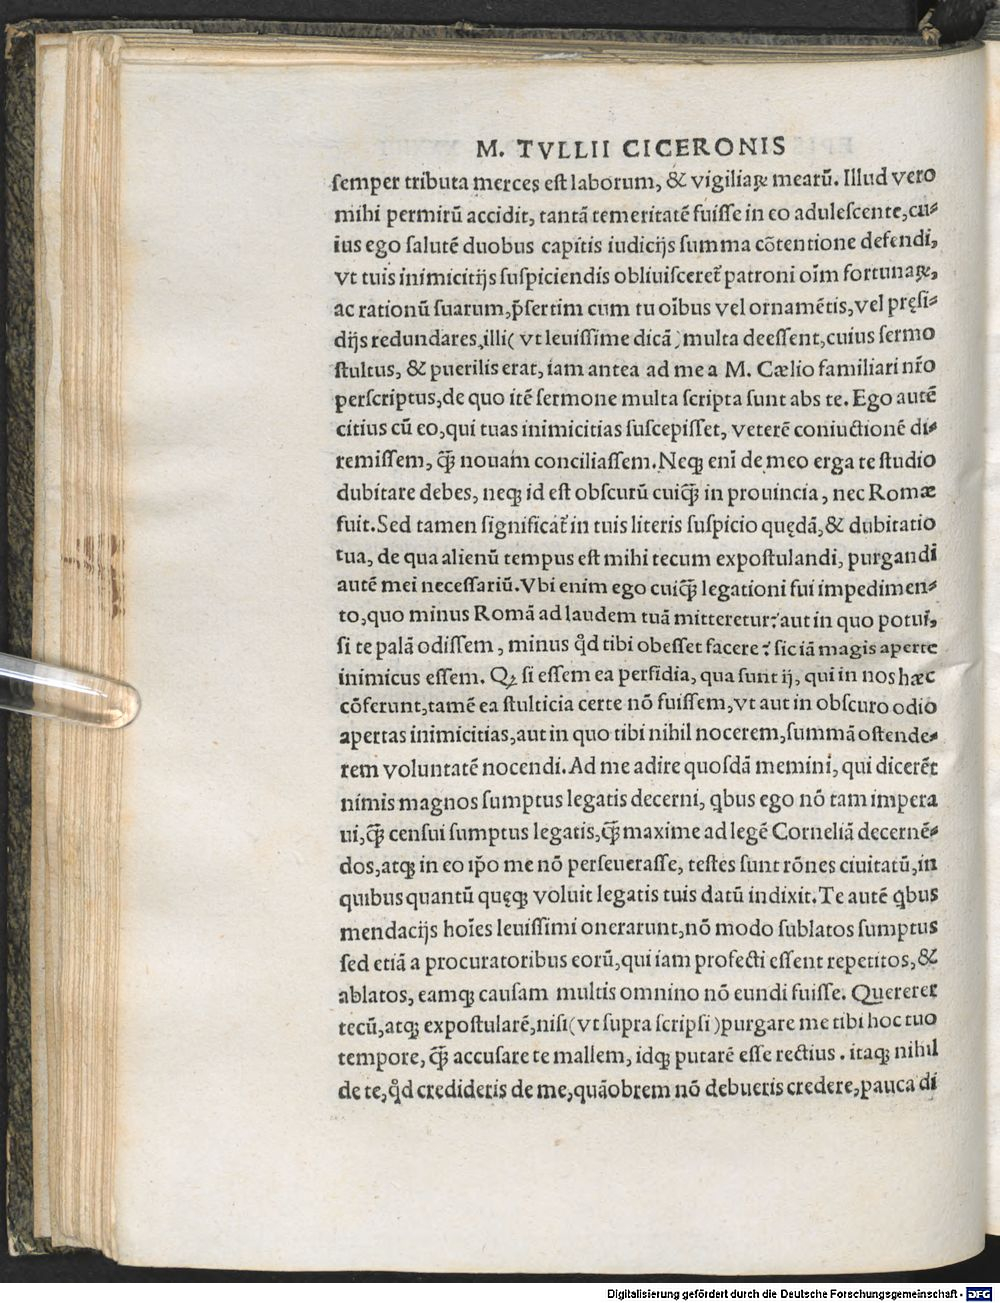 M. TVLLII CICERONIS
ſemper tributa merces eſt laborum, & vigiliaꝝ mearū. Illud vero
mihi permirū accidit, tantā temeritatē fuiſſe in eo aduleſcente, cu-
ius ego ſalutē duobus capitis iudicijs ſumma cōtentione defendi,
vt tuis inimicitijs ſuſpiciendis obliuiſceret᷑ patroni oīm fortunaꝝ,
ac rationū ſuarum, p̄ſertim cum tu oībus vel ornamētis, vel pręſi-
dijs redundares, illi (vt leuiſſime dicā) multa deeſſent, cuius ſermo
ſtultus, & puerilis erat, iam antea ad me a M. Cælio familiari nr̄o
perſcriptus, de quo itē ſermone multa ſcripta ſunt abs te. Ego autē
citius cū eo, qui tuas inimicitias ſuſcepiſſet, veterē coniuctionē di-
remiſſem, q̄ꝫ nouam conciliaſſem. Neqꝫ enī de meo erga te ſtudio
dubitare debes, neqꝫ id eſt obſcurū cuiq̄ꝫ in prouincia, nec Romæ
fuit. Sed tamen ſignificat᷑ in tuis literis ſuſpicio quędā, & dubitatio
tua, de qua alienū tempus eſt mihi tecum expoſtulandi, purgandi
autē mei neceſſariū. Vbi enim ego cuiq̄ꝫ legationi fui impedimen-
to, quo minus Romā ad laudem tuā mitteretur? aut in quo potui,
ſi te palā odiſſem, minus qd̄ tibi obeſſet facere? ſic iā magis aperte
inimicus eſſem. Qꝫ ſi eſſem ea perfidia, qua ſunt ij, qui in nos hæc
cōferunt, tamē ea ſtulticia certe nō fuiſſem, vt aut in obſcuro odio
apertas inimicitias, aut in quo tibi nihil nocerem, ſummā oſtende-
rem voluntatē nocendi. Ad me adire quoſdā memini, qui dicerēt
nimis magnos ſumptus legatis decerni, qbus ego nō tam impera
ui, q̄ꝫ cenſui ſumptus legatis, q̄ꝫ maxime ad legē Corneliā decernē-
dos, atqꝫ in eo ip̄o me nō perſeueraſſe, teſtes ſunt rōnes ciuitatū, in
quibus quantū quęqꝫ voluit legatis tuis datū indixit. Te autē qbus
mendacijs hoīes leuiſſimi onerarunt, nō modo ſublatos ſumptus
ſed etiā a procuratoribus eorū, qui iam profecti eſſent repetitos, &
ablatos, eamqꝫ cauſam multis omnino nō eundi fuiſſe. Quererer
tecū, atqꝫ expoſtularē, niſi (vt ſupra ſcripſi) purgare me tibi hoc tuo
tempore, q̄ꝫ accuſare te mallem, idqꝫ putarē eſſe rectius. itaqꝫ nihil
de te, qd̄ credideris de me, quāobrem nō debueris credere, pauca di
Digitalisierung gefördert durch die Deutsche Forschungsgemeinschaft - DFG